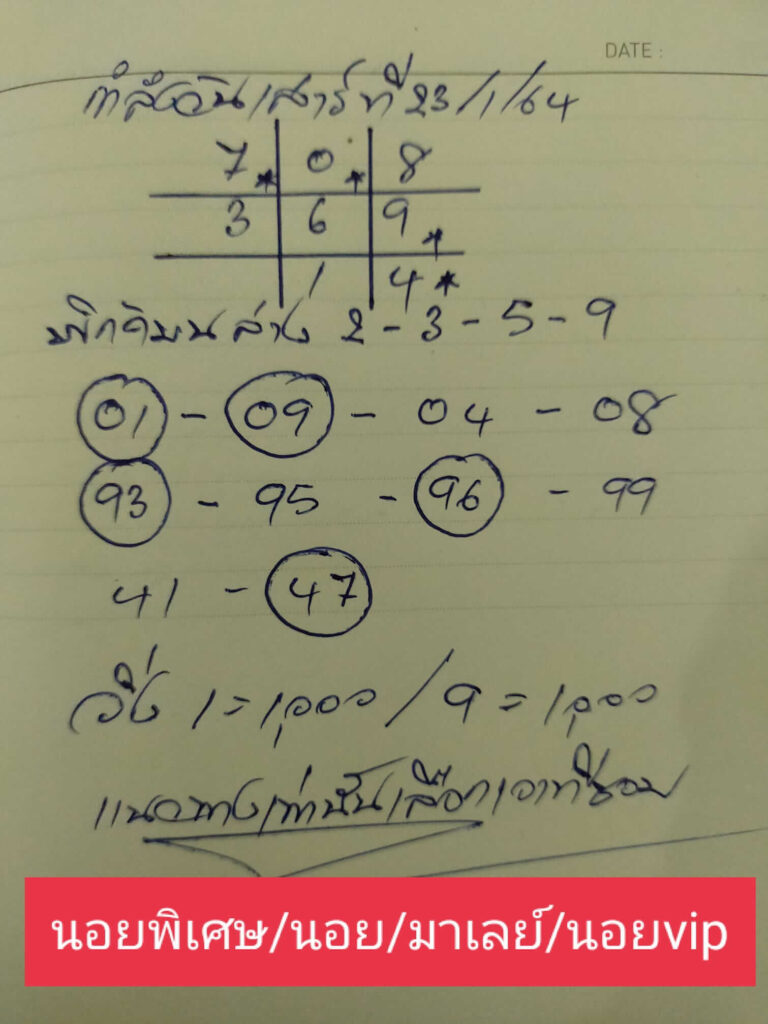 DATE :
กำลังวันเสาร์ที่ 23/1/64
7 0 8
3 6 9
1 4
พิกัดบนล่าง 2 - 3 - 5 - 9
01 - 09 - 04 - 08
93 - 95 - 96 - 99
41 - 47
วิ่ง 1 = 1,000 / 9 = 1,000
แนวทางเท่านั้นเลือกเอาที่ชอบ
นอยพิเศษ/นอย/มาเลย์/นอยvip